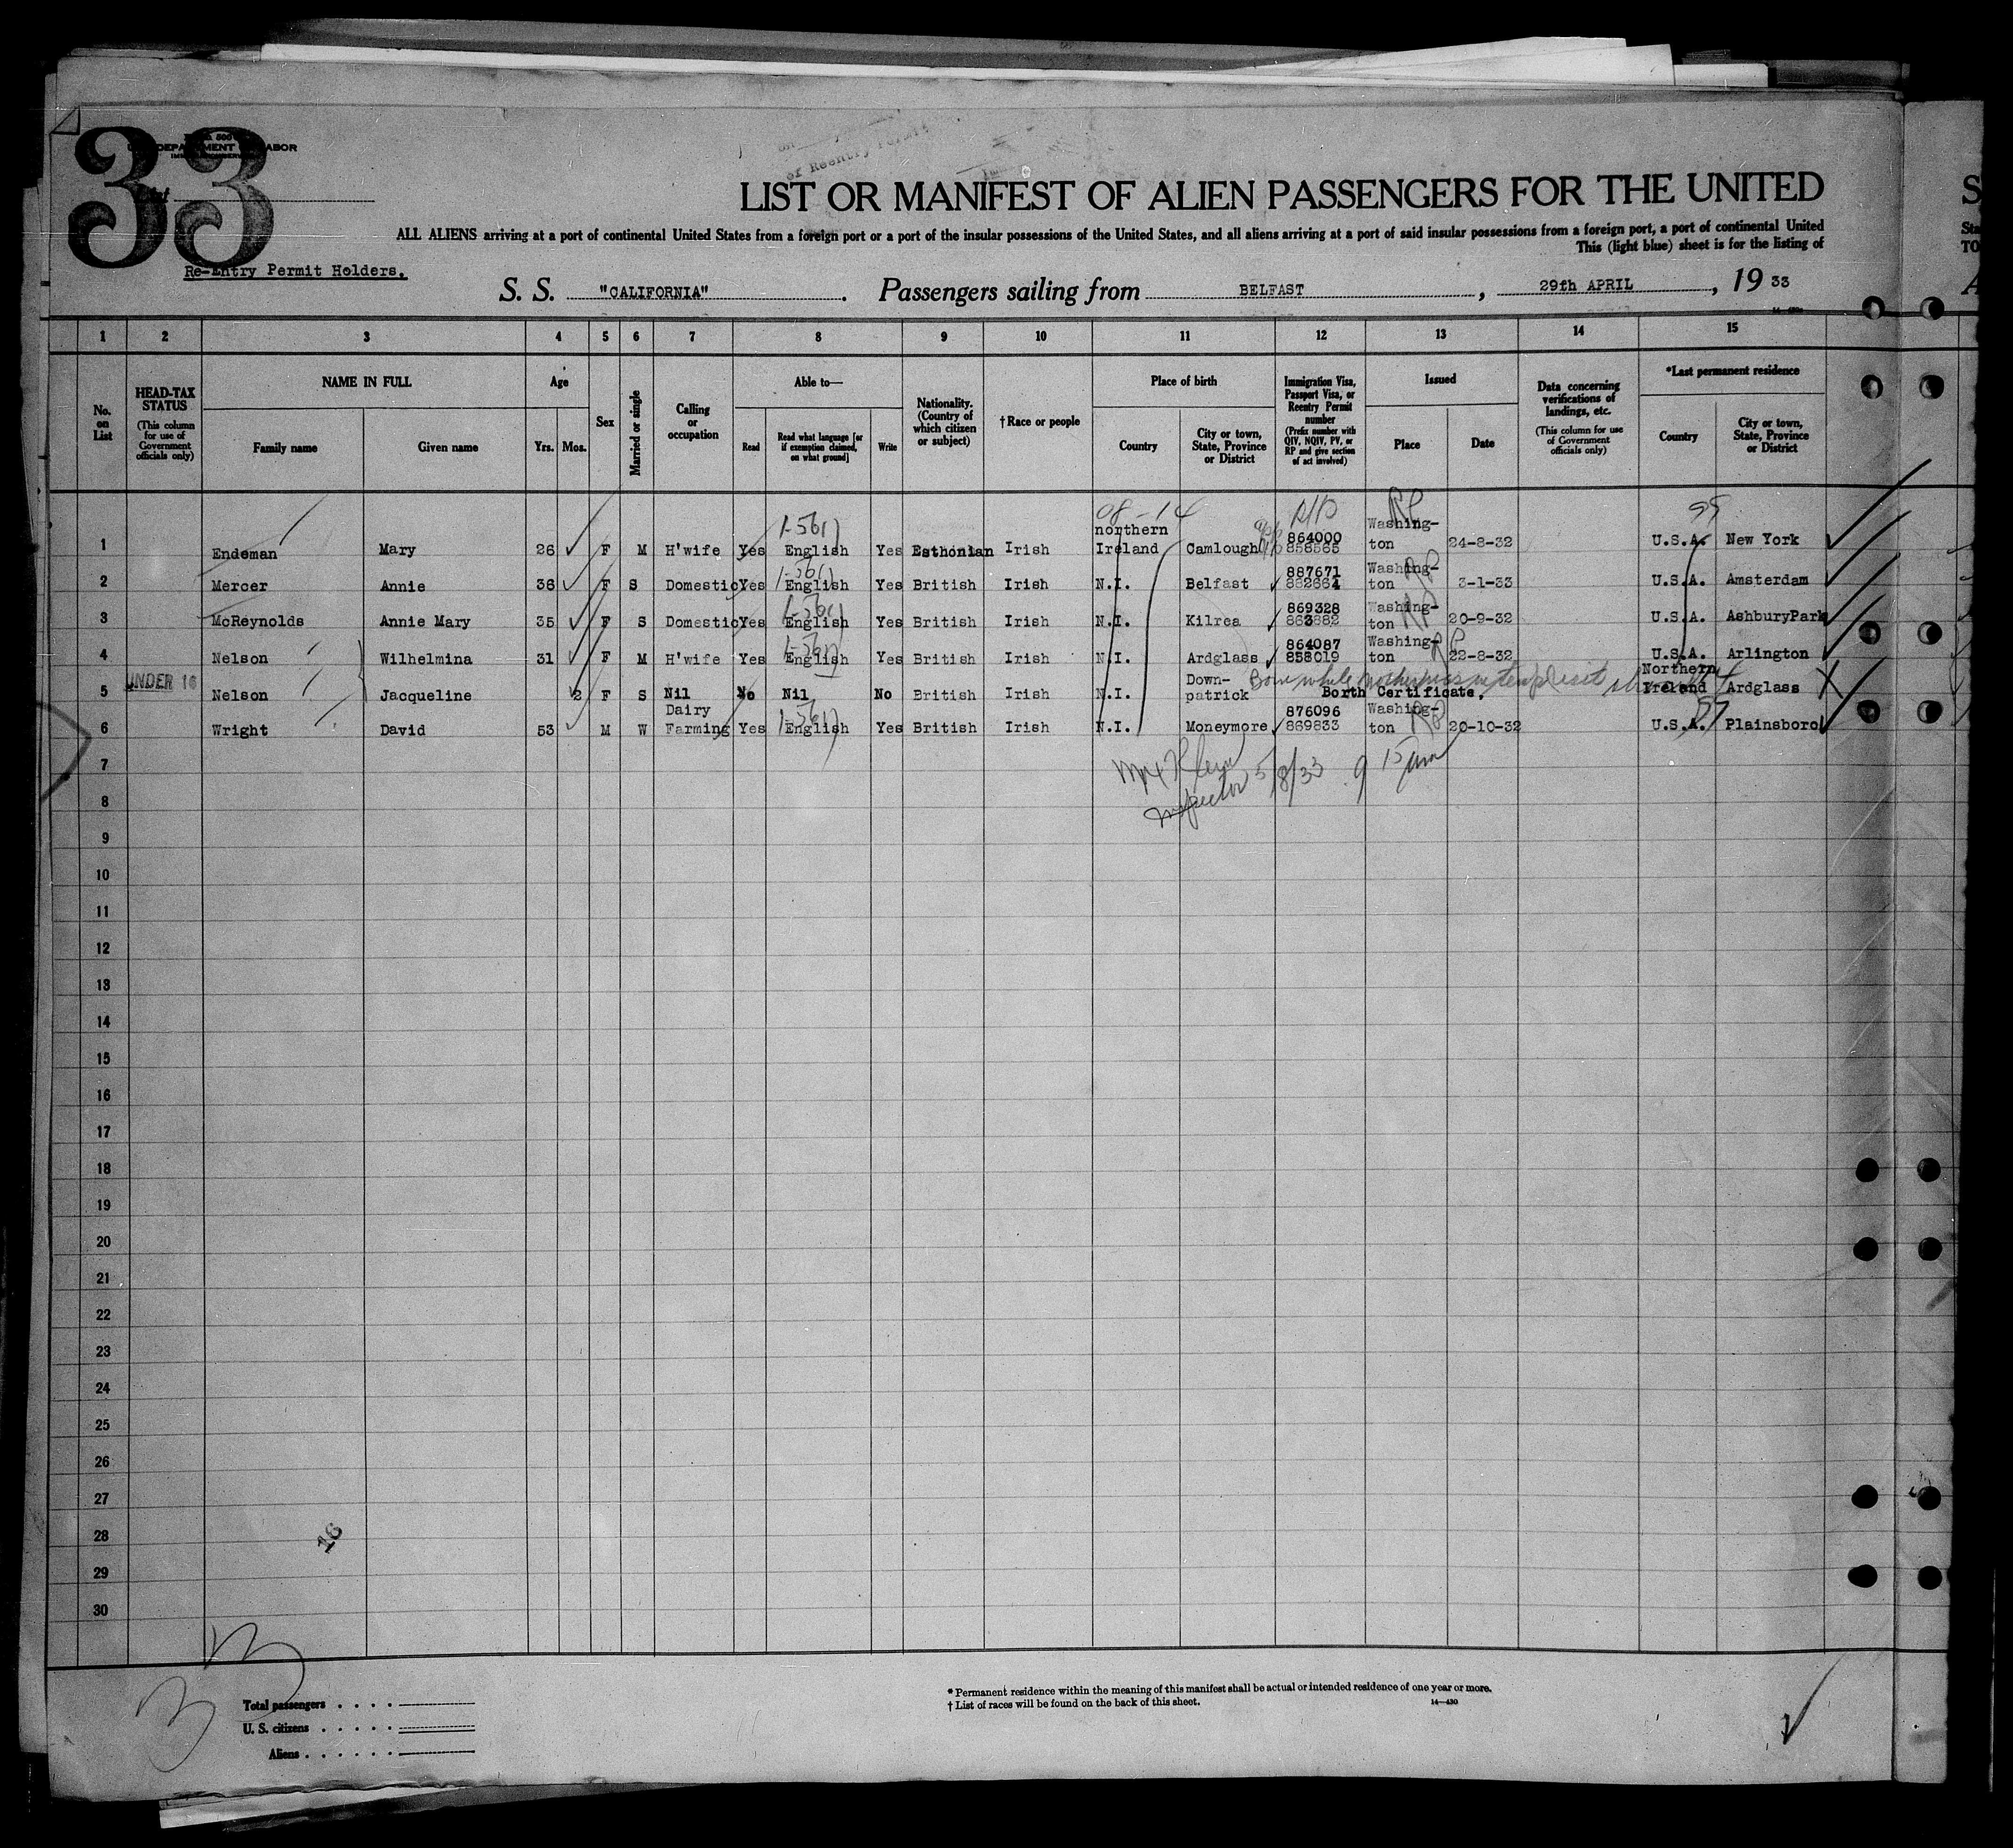 33
List
Re-Entry Permit Holders.
LIST OR MANIFEST OF ALIEN PASSENGERS FOR THE UNITED
ALL ALIENS arriving at a port of continental United States from a foreign port or a port of the insular possessions of the United States, and all aliens arriving at a port of said insular possessions from a foreign port, a port of continental United
This (light blue) sheet is for the listing of
S. S. "CALIFORNIA" . Passengers sailing from BELFAST , 29th APRIL , 19 33
1 2 3 4 5 6 7 8 9 10 11 12 13 14 15
No. on List
HEAD-TAX STATUS (This column for use of Government officials only)
NAME IN FULL Family name Given name
Age Yrs. Mos.
Sex
Married or single
Calling or occupation
Able to— Read Read what language [or if exemption claimed, on what ground] Write
Nationality. (Country of which citizen or subject)
†Race or people
Place of birth Country City or town, State, Province or District
Immigration Visa, Passport Visa, or Reentry Permit number (Prefix number with QIV, NQIV, PV, or RP and give section of act involved)
Issued Place Date
Data concerning verifications of landings, etc. (This column for use of Government officials only)
*Last permanent residence Country City or town, State, Province or District
1 Endeman Mary 26 F M H'wife Yes English Yes Esthonian Irish northern Ireland Camlough 864000 858565 Washington 24-8-32 U.S.A. New York
2 Mercer Annie 36 F S Domestic Yes English Yes British Irish N.I. Belfast 887671 882664 Washington 3-1-33 U.S.A. Amsterdam
3 McReynolds Annie Mary 35 F S Domestic Yes English Yes British Irish N.I. Kilrea 869328 863882 Washington 20-9-32 U.S.A. AshburyPark
4 Nelson Wilhelmina 31 F M H'wife Yes English Yes British Irish N.I. Ardglass 864087 858019 Washington 22-8-32 U.S.A. Arlington
UNDER 16
5 Nelson Jacqueline 2 F S Nil No Nil No British Irish N.I. Down-patrick Borth Certificate. Northern Ireland Ardglass
Born while mother was on temp visit
6 Wright David 53 M W Dairy Farming Yes English Yes British Irish N.I. Moneymore 876096 869833 Washington 20-10-32 U.S.A. Plainsboro
Inspector 5/8/33 9 15 am
7
8
9
10
11
12
13
14
15
16
17
18
19
20
21
22
23
24
25
26
27
28
29
30
16
33
Total passengers
U. S. citizens
Aliens
* Permanent residence within the meaning of this manifest shall be actual or intended residence of one year or more.
† List of races will be found on the back of this sheet.
14—430